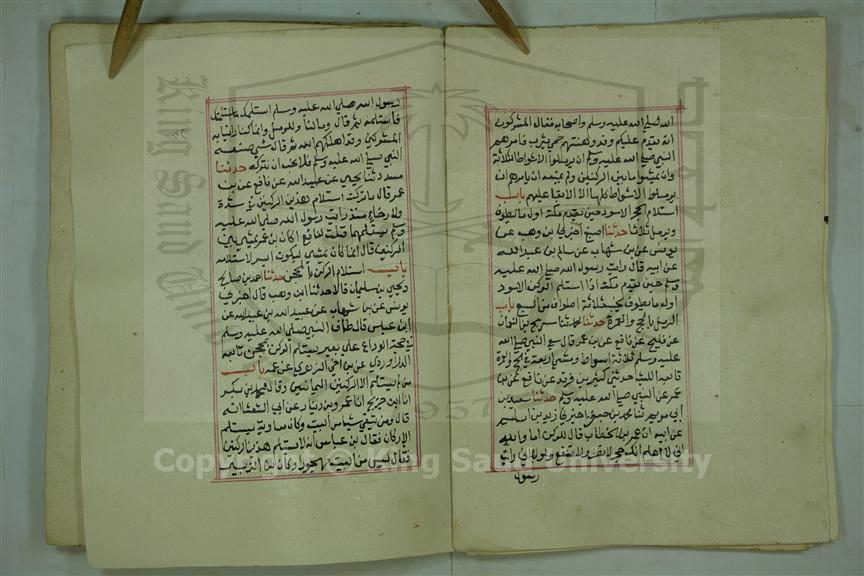 الله صلي الله عليه وسلم واصحابه فقال المشركون
انه يقدم عليكم وقد وهنتهم حمي يثرب فامرهم
النبي صلي الله عليه وسلم ان يرملوا الاشواط الثلاثة
وان يمشوا ما بين الركنين ولم يمنعه ان يامرهم ان
يرملوا الاشواط كلها الا الابقا عليهم باب
استلام الحجر الاسود حين يقدم مكة اول ما يطوف
ويرمل ثلاثا حدثنا اصبغ اخبرني بن وهب عن
يونس عن بن شهاب عن سالم بن عبد الله
عن ابيه قال رايت رسول الله صلي الله عليه
وسلم حين يقدم مكة اذا استلم الركن الاسود
اول ما يطوف يخب ثلاثة اطواف من السبع باب
الرمل في الحج والعمرة حدثنا محمد ثنا سريج بن النعمان
عن فليح عن نافع عن بن عمر قال سعي النبي صلي الله
عليه وسلم ثلاثة اشواط ومشي اربعة في الحج والعمرة
تابعه الليث حدثني كثير بن فرقد عن نافع عن بن
عمر عن النبي صلي الله عليه وسلم حدثنا سعيد بن
ابي مريم ثنا محمد بن جعفر اخبرني زيد بن اسلم
عن ابيه ان عمر بن الخطاب قال للركن اما والله
اني لاعلم انك حجر لا تضر ولا تنفع ولولا اني رايت
رسول
رسول الله صلي الله عليه وسلم استلمك ما استلمتك
فاستلمه ثم قال وما لنا وللرمل وانما كنا راينا به
المشركين وقد اهلكهم الله ثم قال شي صنعه
النبي صلي الله عليه وسلم فلا نحب ان نتركه حدثنا
مسدد ثنا يحيي عن عبيد الله عن نافع عن بن
عمر قال ما تركت استلام هذين الركنين في شدة
ولا رخاء منذ رايت رسول الله صلي الله عليه
وسلم يستلمهما قلت لنافع اكان بن عمر يمشي بين
الركنين قال انما كان يمشي ليكون ايسر لاستلامه
باب استلام الركن بالمحجن حدثنا احمد بن صالح
ويحيي بن سليمان قالا حدثنا ابن وهب قال اخبرني
يونس عن بن شهاب عن عبيد الله بن عبد الله عن
ابن عباس قال طاف النبي صلي الله عليه وسلم
في حجة الوداع علي بعير يستلم الركن بمحجن تابعه
الدراوردي عن بن اخي الزهري عن عمه باب
من لم يستلم الا الركنين اليمانيين وقال محمد بن بكر
انا ابن جريج انا عمرو بن دينار عن ابي الشعثا انه
قال ومن يتقي شيا من البيت وكان معاوية يستلم
الاركان فقال بن عباس انه لا يستلم هذين الركنين
فقال ليس من البيت مهجور وكان بن الزبير
King Saud University
1957
Copyright © King Saud University